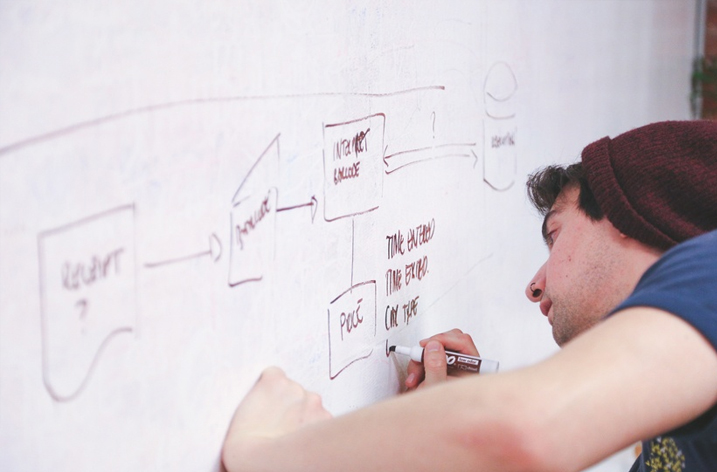 RECEIPT
?
BARCODE
INTERPRET
BARCODE
?
PRICE
TIME ENTERED
TIME EXITED.
CAR TYPE
EXPO